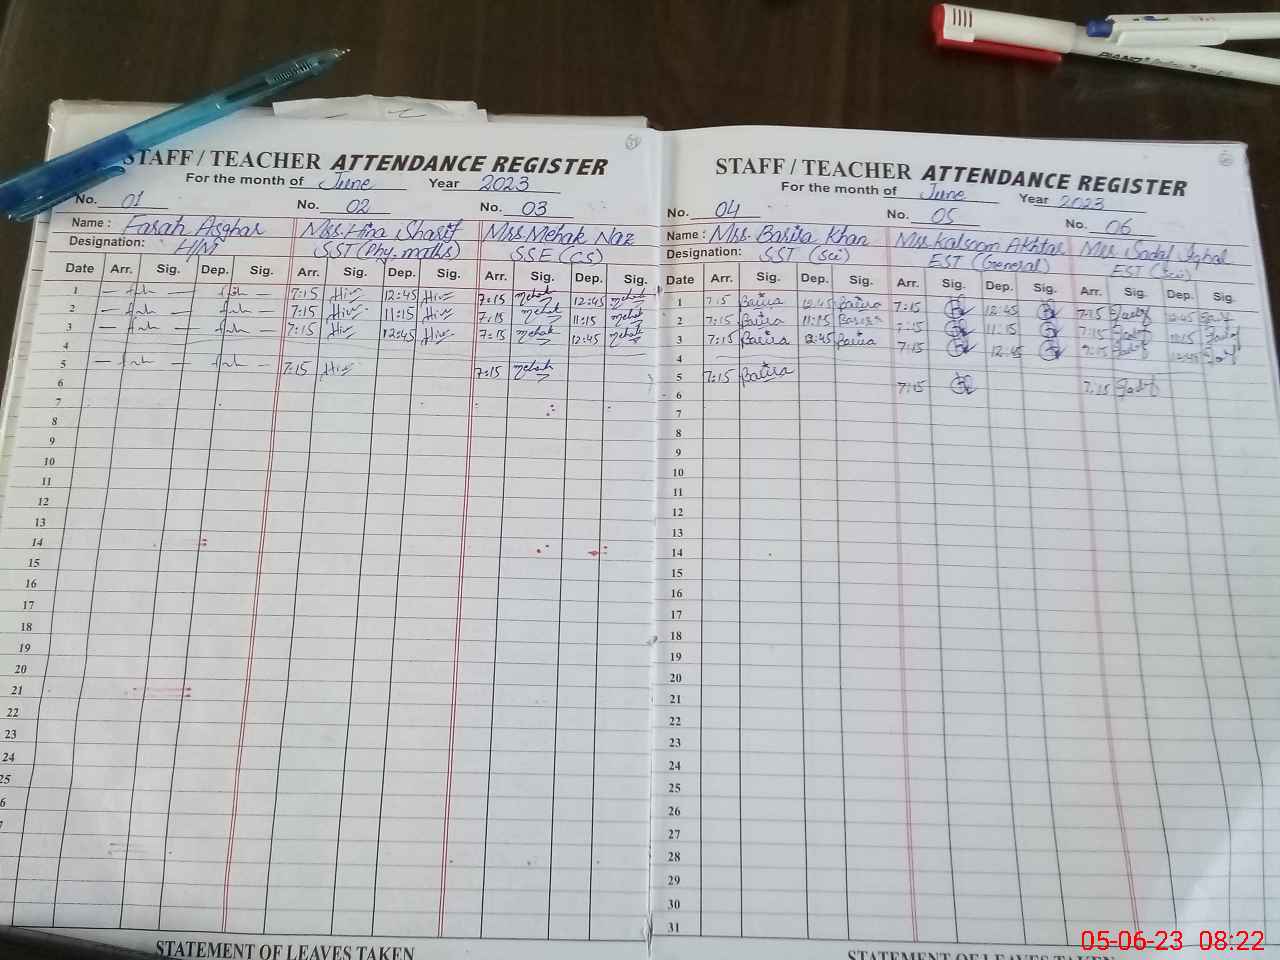 STAFF / TEACHER ATTENDANCE REGISTER
For the month of June Year 2023
No. 01 No. 02 No. 03
Name : Farah Asghar Mrs. Hina Sharif Mrs. Mehak Naz
Designation: H/M SST (Phy, maths) SSE (CS)
Date Arr. Sig. Dep. Sig. Arr. Sig. Dep. Sig. Arr. Sig. Dep. Sig.
1 7:15 12:45 7:15 Mehak 12:45 Mehak
2 7:15 11:15 7:15 Mehak 11:15 Mehak
3 7:15 12:45 7:15 Mehak 12:45 Mehak
4
5 7:15 7:15 Mehak
6
7
8
9
10
11
12
13
14
15
16
17
18
19
20
21
22
23
24
25
6
7
STATEMENT OF LEAVES TAKEN
STAFF / TEACHER ATTENDANCE REGISTER
For the month of June Year 2023
No. 04 No. 05 No. 06
Name : Mrs. Basira Khan Mrs. Kalsoom Akhtar Mrs. Iqbal
Designation: SST (Sci) EST (General) EST (Sci)
Date Arr. Sig. Dep. Sig. Arr. Sig. Dep. Sig. Arr. Sig. Dep. Sig.
1 7:15 Basira 12:45 Basira 7:15 12:45 7:15 12:45
2 7:15 Basira 11:15 Basira 7:15 11:15 7:15 11:15
3 7:15 Basira 12:45 Basira 7:15 12:45 7:15 12:45
4
5 7:15 Basira 7:15 7:15
6
7
8
9
10
11
12
13
14
15
16
17
18
19
20
21
22
23
24
25
26
27
28
29
30
31
STATEMENT OF LEAVES TAKEN
05-06-23 08:22